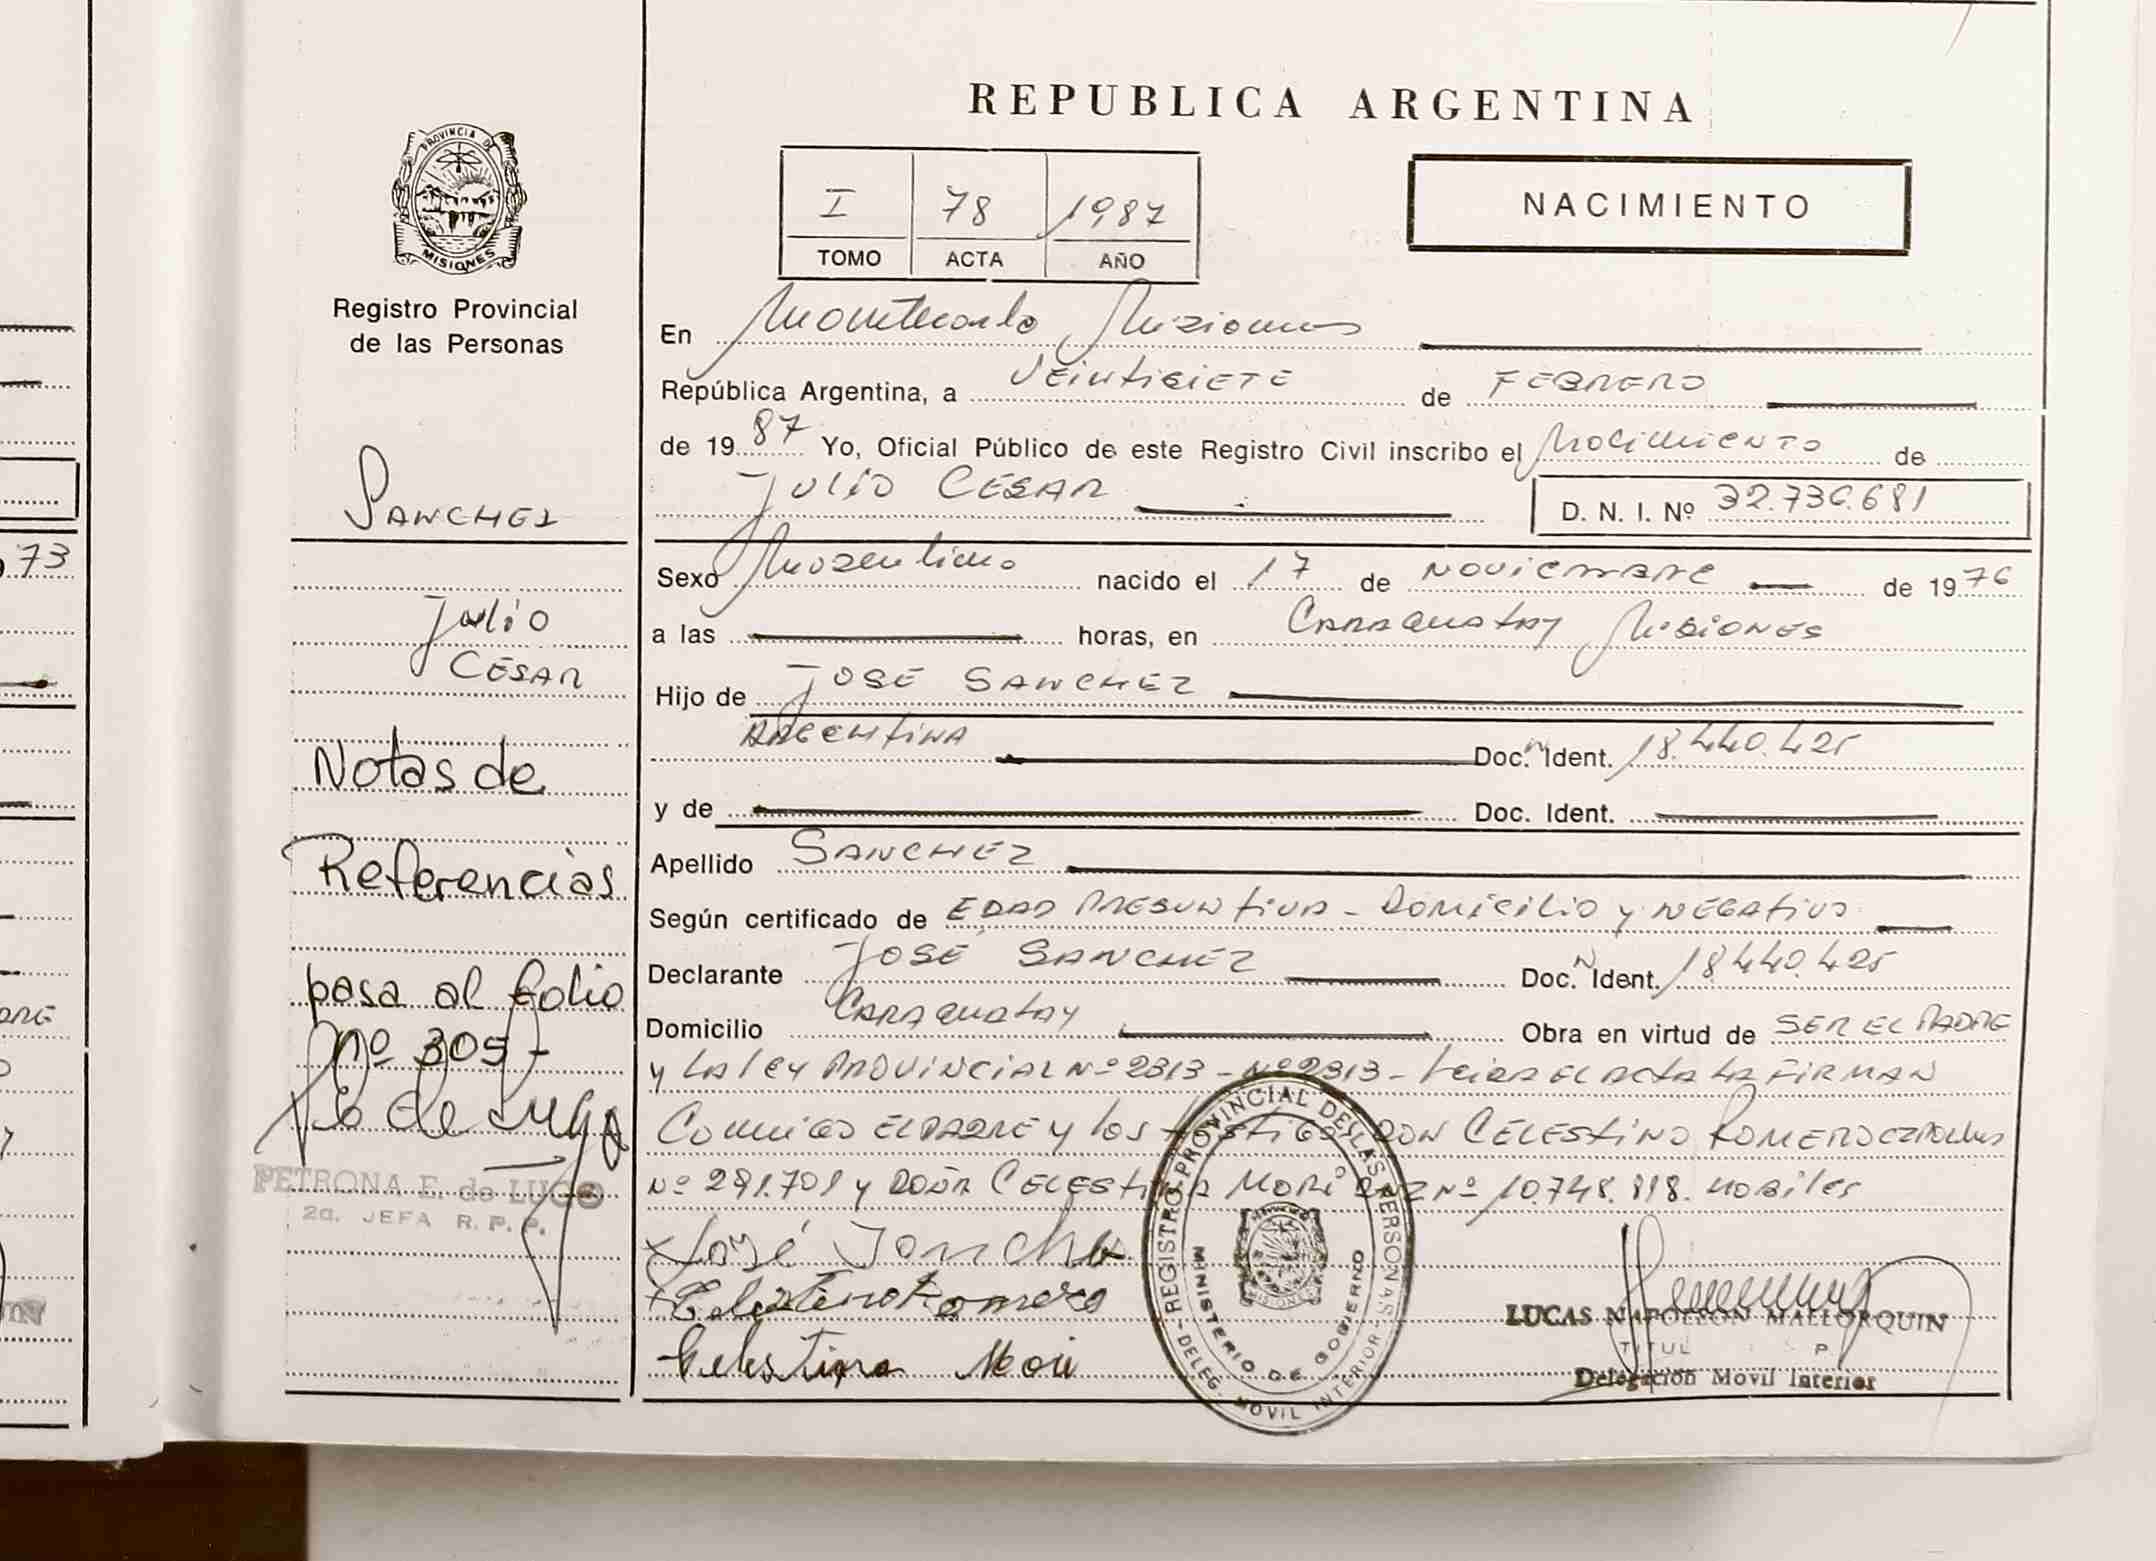 REPUBLICA ARGENTINA
PROVINCIA DE
MISIONES
I 78 1987
TOMO ACTA AÑO
NACIMIENTO
Registro Provincial
de las Personas
En Montecarlo Misiones
República Argentina, a VEINTISIETE de FEBRERO
de 1987 Yo, Oficial Público de este Registro Civil inscribo el Nacimiento de
JULIO CESAR D. N. I. Nº 32.736.681
SANCHEZ
Julio
CESAR
Sexo Masculino nacido el 17 de NOVIEMBRE de 1976
a las horas, en CARAGUATAY MISIONES
Hijo de JOSE SANCHEZ
ARGENTINA Doc. N Ident. 18.440.425
y de Doc. Ident.
Apellido SANCHEZ
Según certificado de EDAD PRESUNTIVA - DOMICILIO y NEGATIVO
Declarante JOSÉ SANCHEZ Doc. N Ident. 18.440.425
Domicilio CARAGUATAY Obra en virtud de SER EL PADRE
y LA LEY PROVINCIAL Nº 2313 - Nº 2313 - Leida EL ACTA LA FIRMAN
Conmigo EL PADRE y LOS TESTIGOS DON CELESTINO ROMERO
Nº 291.701 y DOÑA CELESTINA MORI Nº 10.748.818. HABILES
Notas de
Referencias
pasa al folio
Nº 305-
PETRONA E. de LUGO
2a. JEFA R. P. P.
José Sanchez
Celestino Romero
Celestina Mori
REGISTRO PROVINCIAL DE LAS PERSONAS
MINISTERIO DE GOBIERNO
DELEG. MOVIL INTERIOR
MISIONES
LUCAS NAPOLEON MALLORQUIN
TITUL P.
Delegación Movil Interior
73